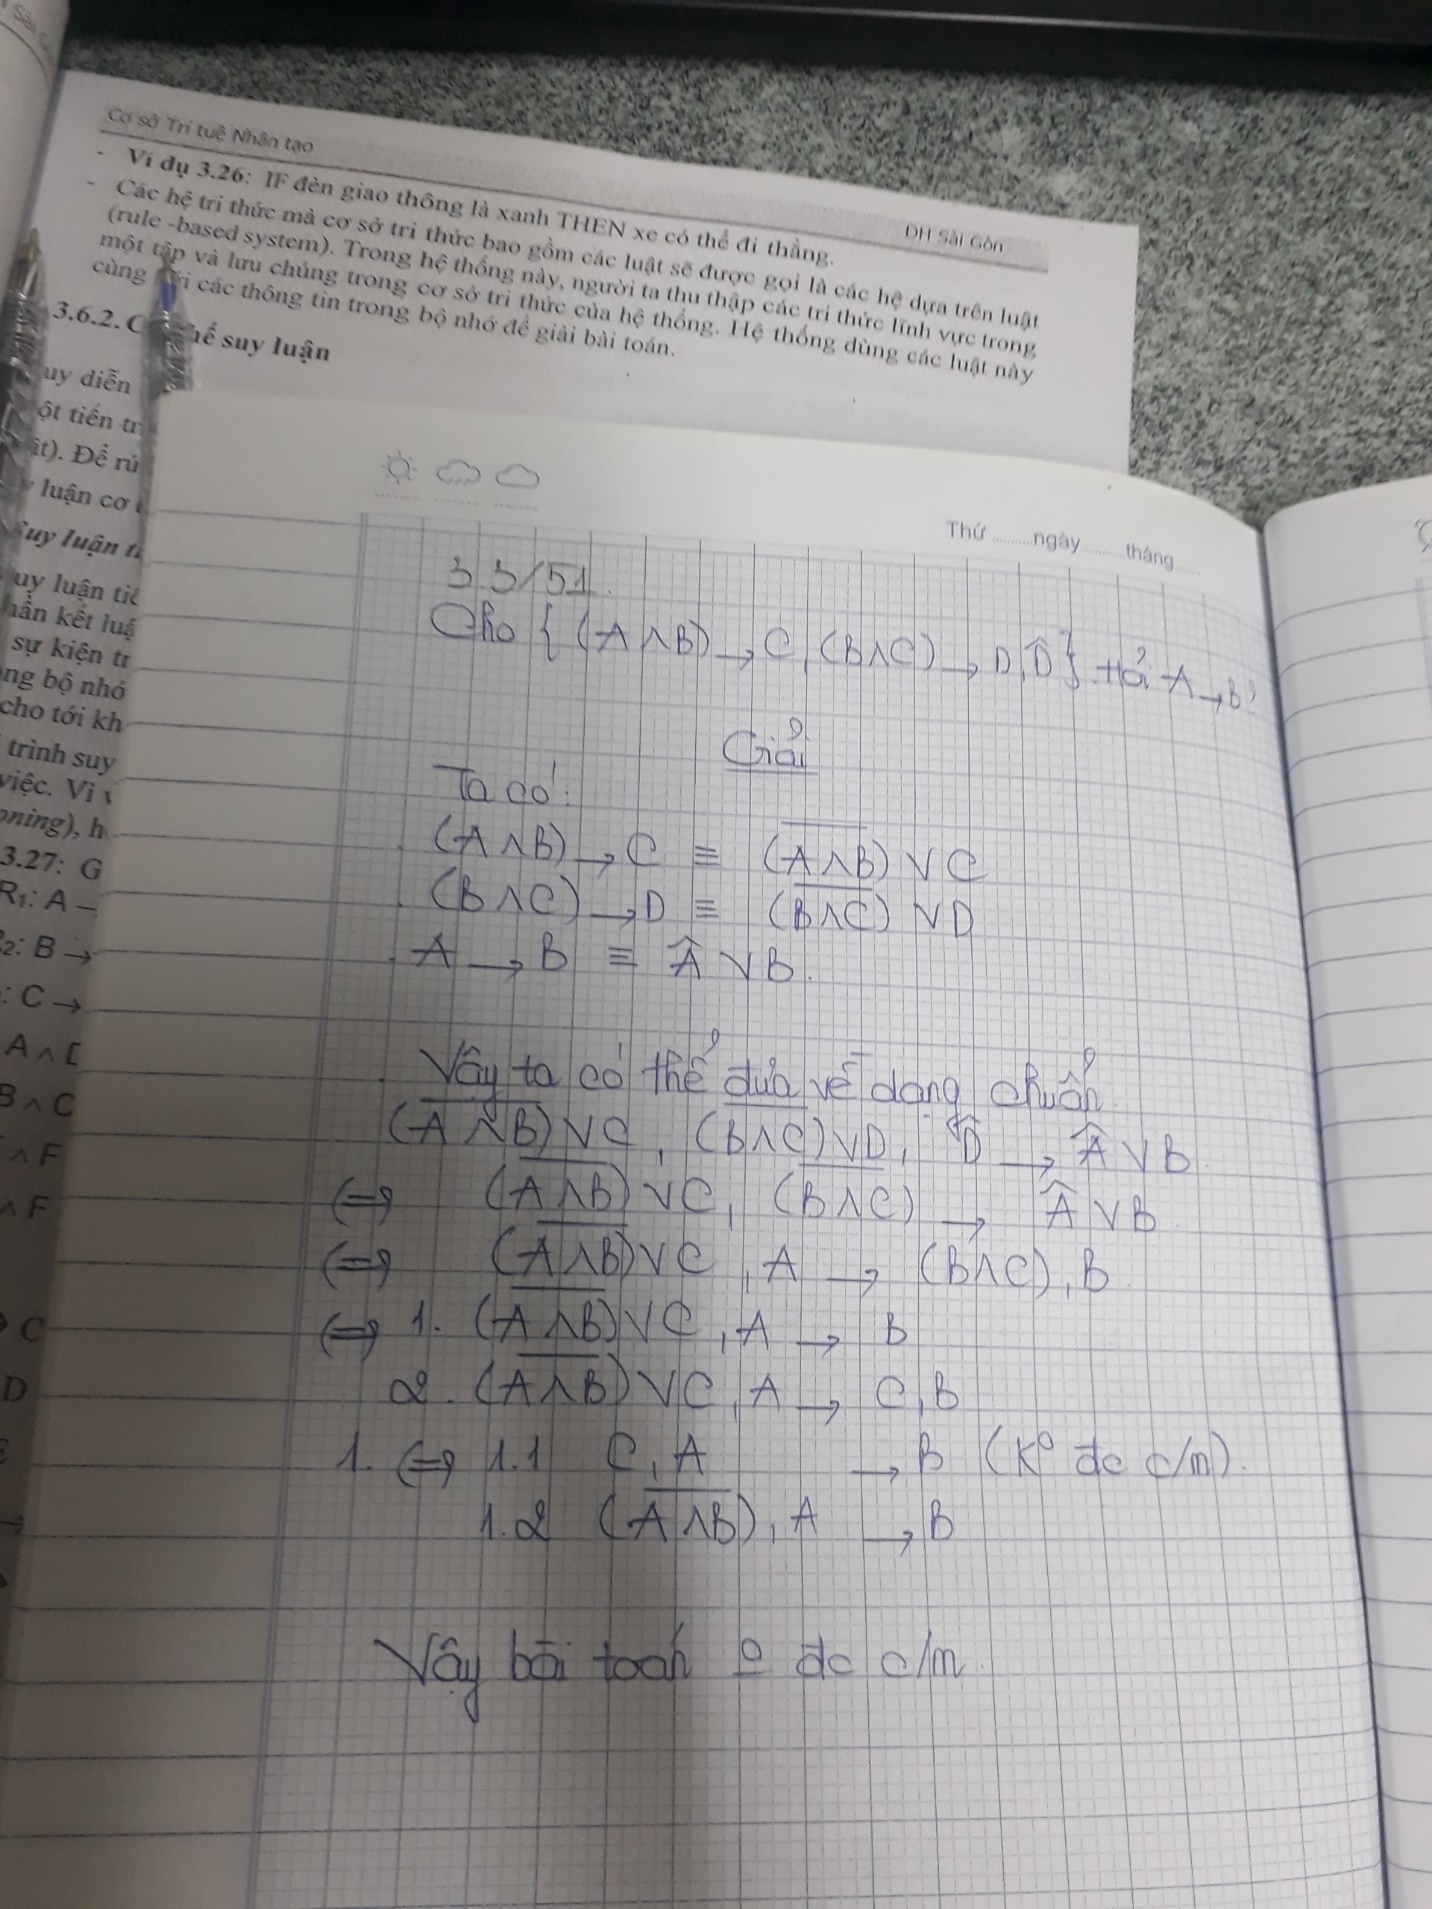 Cơ sở Trí tuệ Nhân tạo
ĐH Sài Gòn
- Ví dụ 3.26: IF đèn giao thông là xanh THEN xe có thể đi thẳng.
- Các hệ tri thức mà cơ sở tri thức bao gồm các luật sẽ được gọi là các hệ dựa trên luật
(rule -based system). Trong hệ thống này, người ta thu thập các tri thức lĩnh vực trong
một tập và lưu chúng trong cơ sở tri thức của hệ thống. Hệ thống dùng các luật này
cùng với các thông tin trong bộ nhớ để giải bài toán.
3.6.2. C hế suy luận
uy diễn
ột tiến tr
ật). Để rú
luận cơ
uy luận t
uy luận tiế
hần kết luậ
sự kiện tr
ng bộ nhớ
cho tới kh
trình suy
việc. Vì v
oning), h
3.27: G
R₁: A →
2: B →
: C →
A ∧ D
B ∧ C
∧ F
∧ F
C
D
Thứ ........ ngày ........ tháng ......
3.3/51.
Cho { (A∧B) → C, (B∧C) → D, D̅ }. Hỏi A → B?
Giải
Ta có:
(A∧B) → C ≡ (A̅∧̅B̅) ∨ C
(B∧C) → D ≡ (B̅∧̅C̅) ∨ D
A → B ≡ A̅ ∨ B.
Vậy ta có thể đưa về dạng chuẩn
(A̅∧̅B̅) ∨ C, (B̅∧̅C̅) ∨ D, D̅ → A̅ ∨ B.
⇔ (A̅∧̅B̅) ∨ C, (B̅∧̅C̅) → A̅ ∨ B.
⇔ (A̅∧̅B̅) ∨ C, A → (B∧C), B.
⇔ 1. (A̅∧̅B̅) ∨ C, A → B
2. (A̅∧̅B̅) ∨ C, A → C, B
1. ⇔ 1.1 C, A → B (K° đc c/m).
1.2 (A̅∧̅B̅), A → B
Vậy bài toán o đc c/m.